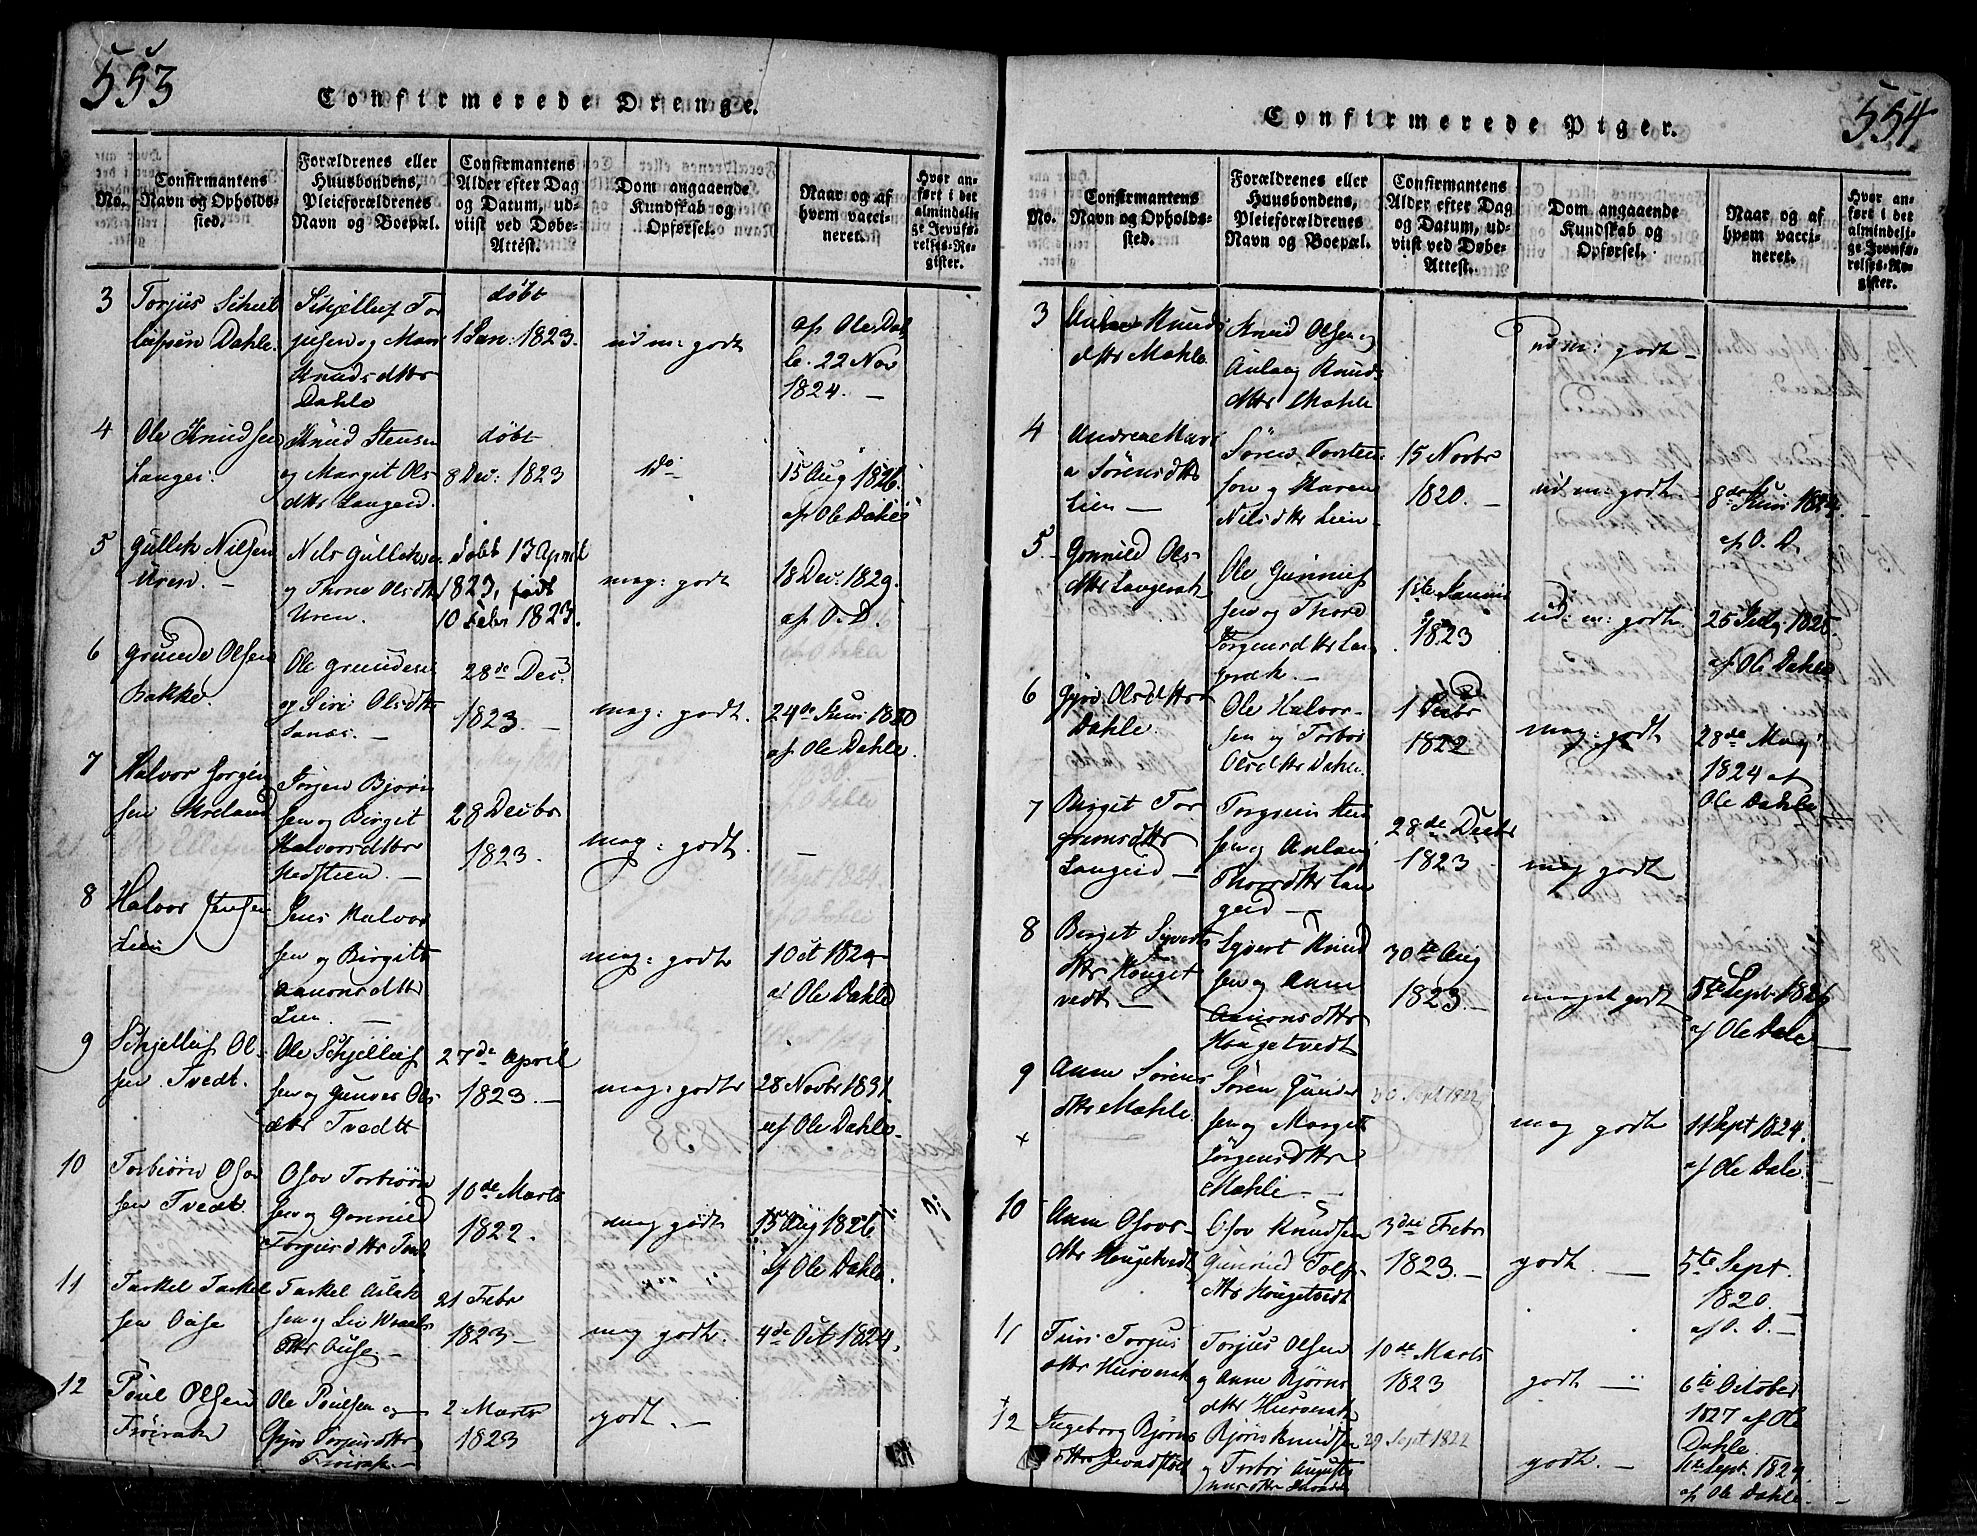 553
Confirmerede Drenge.
No.
Confirmantens
Navn og Opholds-
sted.
Forældrenes eller
Huusbondens,
Pleieforældrenes
Navn og Boepæl.
Confirmantens
Alder efter Dag
og Datum, ud-
viist ved Døbe-
Attest.
Dom angaaende
Kundskab og
Opførsel.
Naar og af
hvem vacci-
neret.
Hvor an-
ført i det
almindeli-
ge Jevnfø-
relses-Re-
gister.
3
Torjus
Dahle
og
Knudsdttr
Dahle
døbt
1 Jan: 1823.
ud m: godt
af Ole Dah
le. 22 Nov
1824. —
4
Ole Knudsen
Langei:
Knud Stensen
og Margit Ols
dttr Langeid
døbt
8 Dec: 1823
Do
15 Aug 1826.
af Ole Dahle
5
Gullek Nilsen
Uren. —
Nils Gulleksen
og Thone Olsdtt
Uren.
døbt 13 April
1823, født
10 Febr 1823.
mag: godt
18 Dec: 1829.
af O. D.
6
Grunde Olsen
Bakke.
Ole Grundesen
og Siri Olsdttr
28de Dec.
1823. —
mag: godt.
24de Juni 1830
af Ole Dahle.
7
Halvor Jorgen
sen
Jørgen Bjorn
sen og Birgit
Halvorsdttr
28 Decbr
1823.
mag: godt.
—
8
Halvor Jensen
Lien
Jens Halvor
sen og Birgitt
Aanonsdttr
Lien. —
mag: godt
1 Oct 1824
af Ole Dahle
9
Schjelleif Ol-
sen Tvedt.
Ole Schjelleif
sen og Gunver Ols-
dttr Tvedtt
27de April
1823. —
mag: godt
28 Novbr 1831.
af Ole Dahle.
10
Torbiørn Osov
sen Tvedt.
Osov Torbiørn
sen og Gonnild
Torjusdttr
10de Marts
1822.
mag godt
15 Aug 1826
af Ole Dahle
11
Taskel Taskel
sen Ouse
Taskel Aslak
sen og
dttr Ouse. —
21 Febr
1823 —
mag godt.
4de Oct 1824.
12
Poul Olsen
Frøirak
Ole Poulsen og
Gyro Torjusdttr
Frøirak. —
2 Marts
1823
godt. —
554
Confirmerede Piger.
No.
Confirmantens
Navn og Opholds-
sted.
Forældrenes eller
Huusbondens,
Pleieforældrenes
Navn og Boepæl.
Confirmantens
Alder efter Dag
og Datum, ud-
viist ved Døbe-
Attest.
Dom angaaende
Kundskab og
Opførsel.
Naar og af
hvem vacci-
neret.
Hvor an-
ført i det
almindeli-
ge Jevnfø-
relses-Re-
gister.
3
Knuds
dttr Mæhle
Knud Olsen og
Aulaug Knuds
dttr Mæhle
ud m: godt —
4
Andrene
Sörensdttr
Lien —
Sören Torsten
sen og Karen
Nilsdttr Lien.
15 Novbr
1820. —
ud m: godt —
8de Juni 1824.
af O. D.
5.
Gonnild Ols-
dttr Langerak
Ole Gunnuf
sen og Thore
Jørgensdttr Lan
gerak. —
1ste Januar
1823
ud: m: godt.
25 July 1825.
af Ole Dahle
6
Gyro Olsdttr
Dahle.
Ole Halvor-
sen og Torbor
Olsdttr Dahle.
1
1822
mag: godt
28de May
1824 af
Ole Dahle
7
Birgit Tor
grimsdttr
Langeid —
Torgrim Sten
sen og Aulaug
Thorsdttr Lan
geid —
28de Decbr
1823
mag godt
8
Birget Syverts
dttr Houget
vedt —
Syvert Knud
sen og Anne
Aanonsdttr
Hougetvedt
30te Aug
1823. —
meget godt
5te Sept: 1826
af Ole Dale —
9
Anne Sörens
dttr Mæhle.
+
Sören Gunder
sen og Marget
Jørgensdttr
Mæhle —
20 Sept 1822
mag godt
11 Sept 1824.
af Ole Dale.
10
Anne Osovs-
dttr Hougetvedt
Osov Knudsen
Gunnild
dttr Hougetvedt
3die Febr
1823. —
godt. —
5te Sept.
1820. —
af O. D. —
11
Torjus
dttr
Torjus Olsen
og Anne Bjørns
dttr
10de Marts
1823
godt —
6te October
1827 af Ole
Dahle.
+
12
Ingeborg Bjørns
dttr
Bjørn Knudsen
og Torbor
29 Sept 1822
godt. —
11te Sept. 1824
af Ole Dahle. —